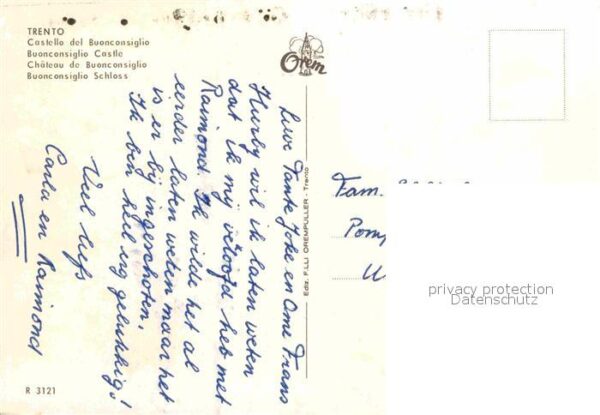 TRENTO
Castello del Buonconsiglio
Buonconsiglio Castle
Château de Buonconsiglio
Buonconsiglio Schloss
Orem
Lieve Tante Joke en Ome Frans
Hierbij wil ik laten weten
dat ik mij verloofd heb met
Raimond. Ik wilde het al
eerder laten weten maar het
is er bij ingeschoten.
Ik ben heel erg gelukkig!
Veel liefs
Carla en Raimond
Ediz. F.LLI OREMPULLER - Trento
Fam.
privacy protection
Datenschutz
R 3121